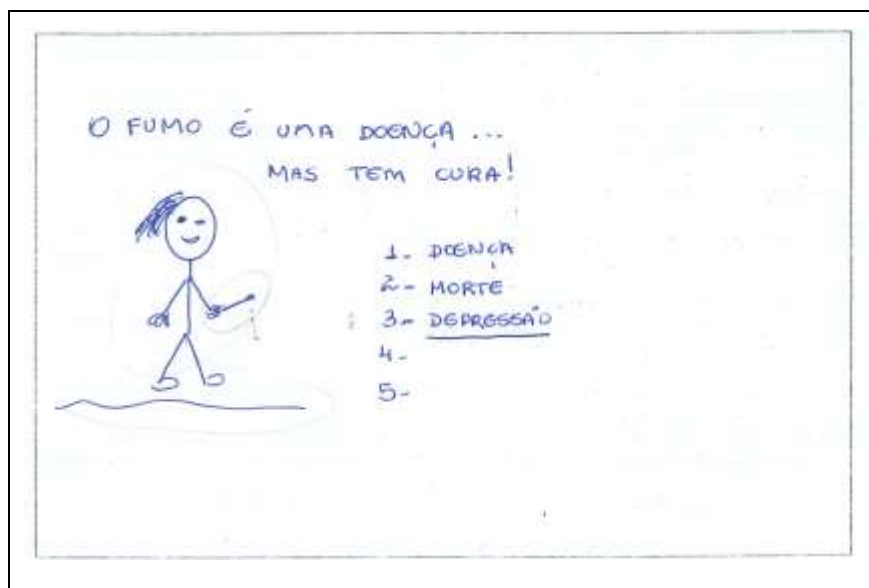 O FUMO É UMA DOENÇA ...
MAS TEM CURA!
1- DOENÇA
2- MORTE
3- DEPRESSÃO
4-
5-